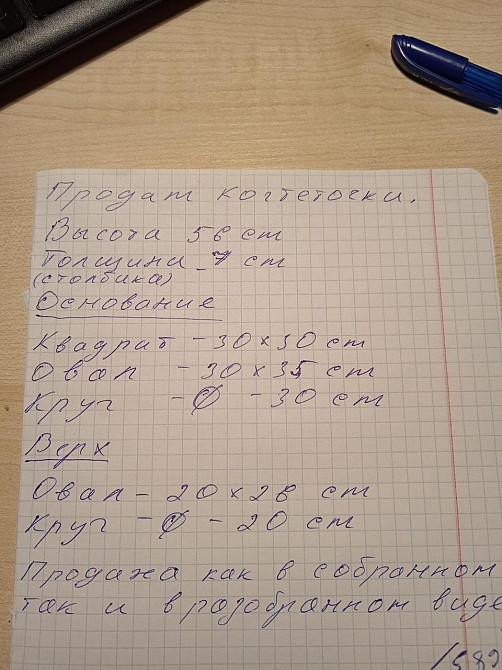 Продам когтеточки.
Высота 56 cm
Толщина - 7 cm
(столбика)
Основание
Квадрат - 30 x 30 cm
Овал - 30 x 35 cm
Круг - Ø - 30 cm
Верх
Овал - 20 x 26 cm
Круг - Ø - 20 cm
Продажа как в собранном
так и в разобранном виде